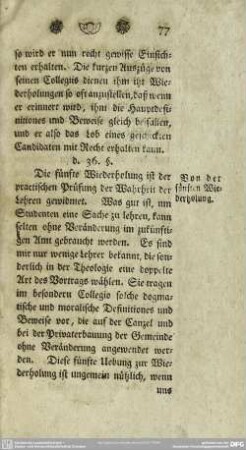 77
so wird er nun recht gewisse Einsich-
ten erhalten. Die kurzen Auszüge von
seinen Collegiis dienen ihm iht Wie-
derholungen so oft anzustellen, daß wenn
er erinnert wird, ihm die Hauptdefi-
nitiones und Beweise gleich beifallen,
und er also das Lob eines geschickten
Candidaten mit Recht erhalten kann.
d. 36. §.
Die fünfte Wiederholung ist der
practischen Prüfung der Wahrheit der
Lehren gewidmet. Was gut ist, um
Studenten eine Sache zu lehren, kann
selten ohne Veränderung im zukünfti-
gen Amt gebraucht werden. Es sind
mir nur wenige Lehrer bekannt, die son-
derlich in der Theologie eine doppelte
Art des Vortrags wählen. Sie tragen
im besondern Collegio solche dogma-
tische und moralische Definitiones und
Beweise vor, die auf der Canzel und
bei der Privaterbauung der Gemeinde
ohne Veränderung angewendet wer-
den. Diese fünfte Uebung zur Wie-
derholung ist ungemein nützlich, wenn
uns
Von der
fünften Wie-
derholung.